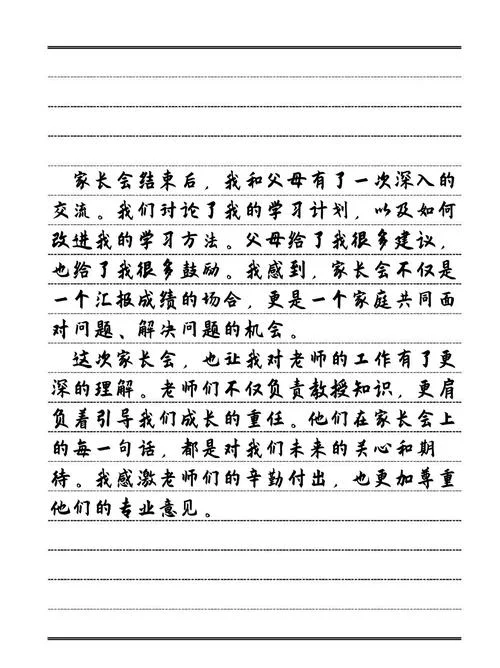 家长会结束后，我和父母有了一次深入的
交流。我们讨论了我的学习计划，以及如何
改进我的学习方法。父母给了我很多建议，
也给了我很多鼓励。我感到，家长会不仅是
一个汇报成绩的场合，更是一个家庭共同面
对问题、解决问题的机会。
这次家长会，也让我对老师的工作有了更
深的理解。老师们不仅负责教授知识，更肩
负着引导我们成长的重任。他们在家长会上
的每一句话，都是对我们未来的关心和期
待。我感激老师们的辛勤付出，也更加尊重
他们的专业意见。